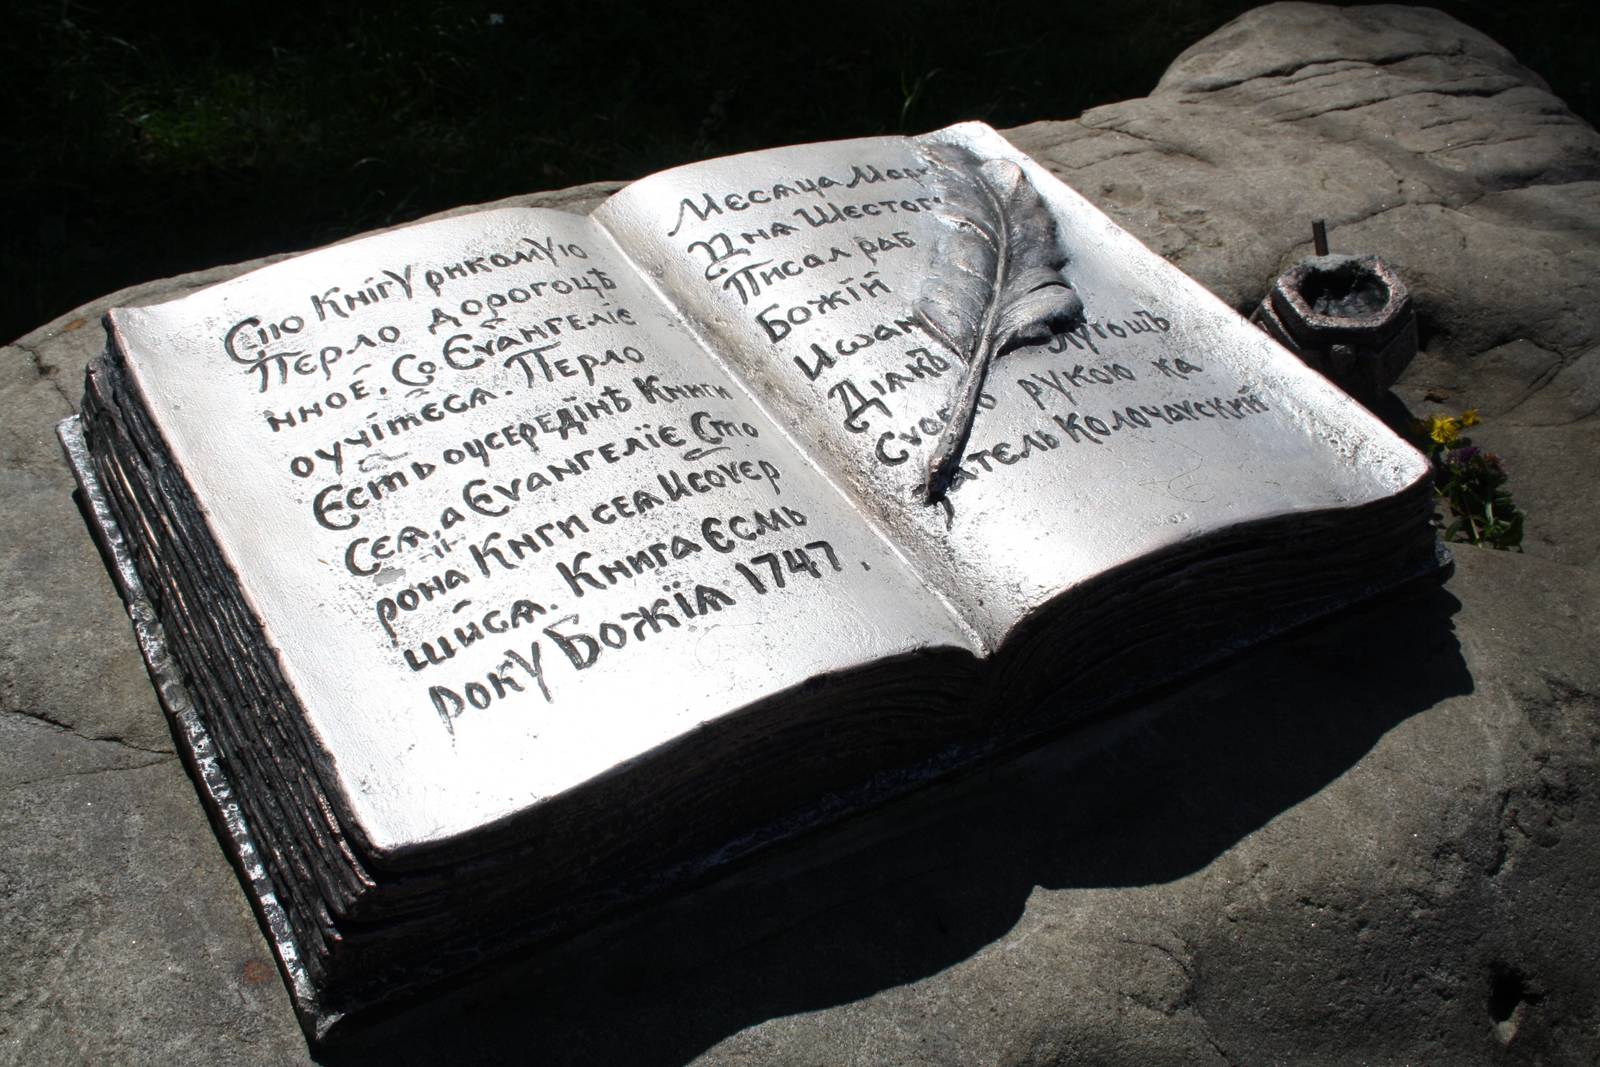 Сїю Кнігу рикомую
Перло дорогоцѣ
нноє. Со Єѵангеліє
оучітєсѧ. Перло
Єсть оусередінѣ Книги
Сеѧ, а Єѵангеліє Сто
рона Книги сеѧ Исочер
шийсѧ. Книга Єсмь
року Божїѧ 1747.
Месѧца Мар
Дна Шестог
Писал раб
Божїй
Иѡан
Дїакъ Лугошъ
рукою ка
атель Колочавский